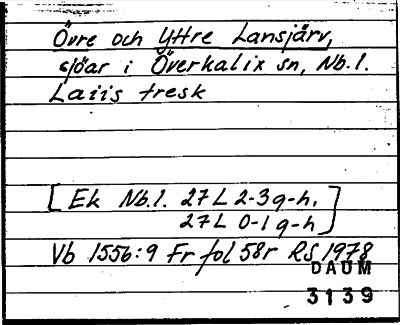 Övre och Yttre Lansjärv,
sjöar i Överkalix sn, Nb.l.
Laiis tresk
[Ek Nb.l. 27L 2-3g-h,
27L 0-1g-h]
Vb 1556:9 Fr fol 58r RS 1978
DAUM
3139